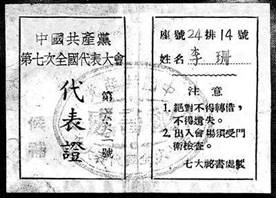 中國共產黨
第七次全國代表大會
代表證
第六六一號
候補
座號24排14號
姓名 李珊
注意
1.絕對不得轉借，
不得遺失。
2.出入會場須受門
衛檢查。
七大祕書處製